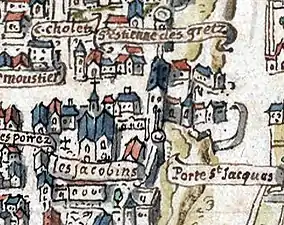 C. cholet
St Estienne des gretz
rmoustier
es porez
es jacobins
Porte St Jacques